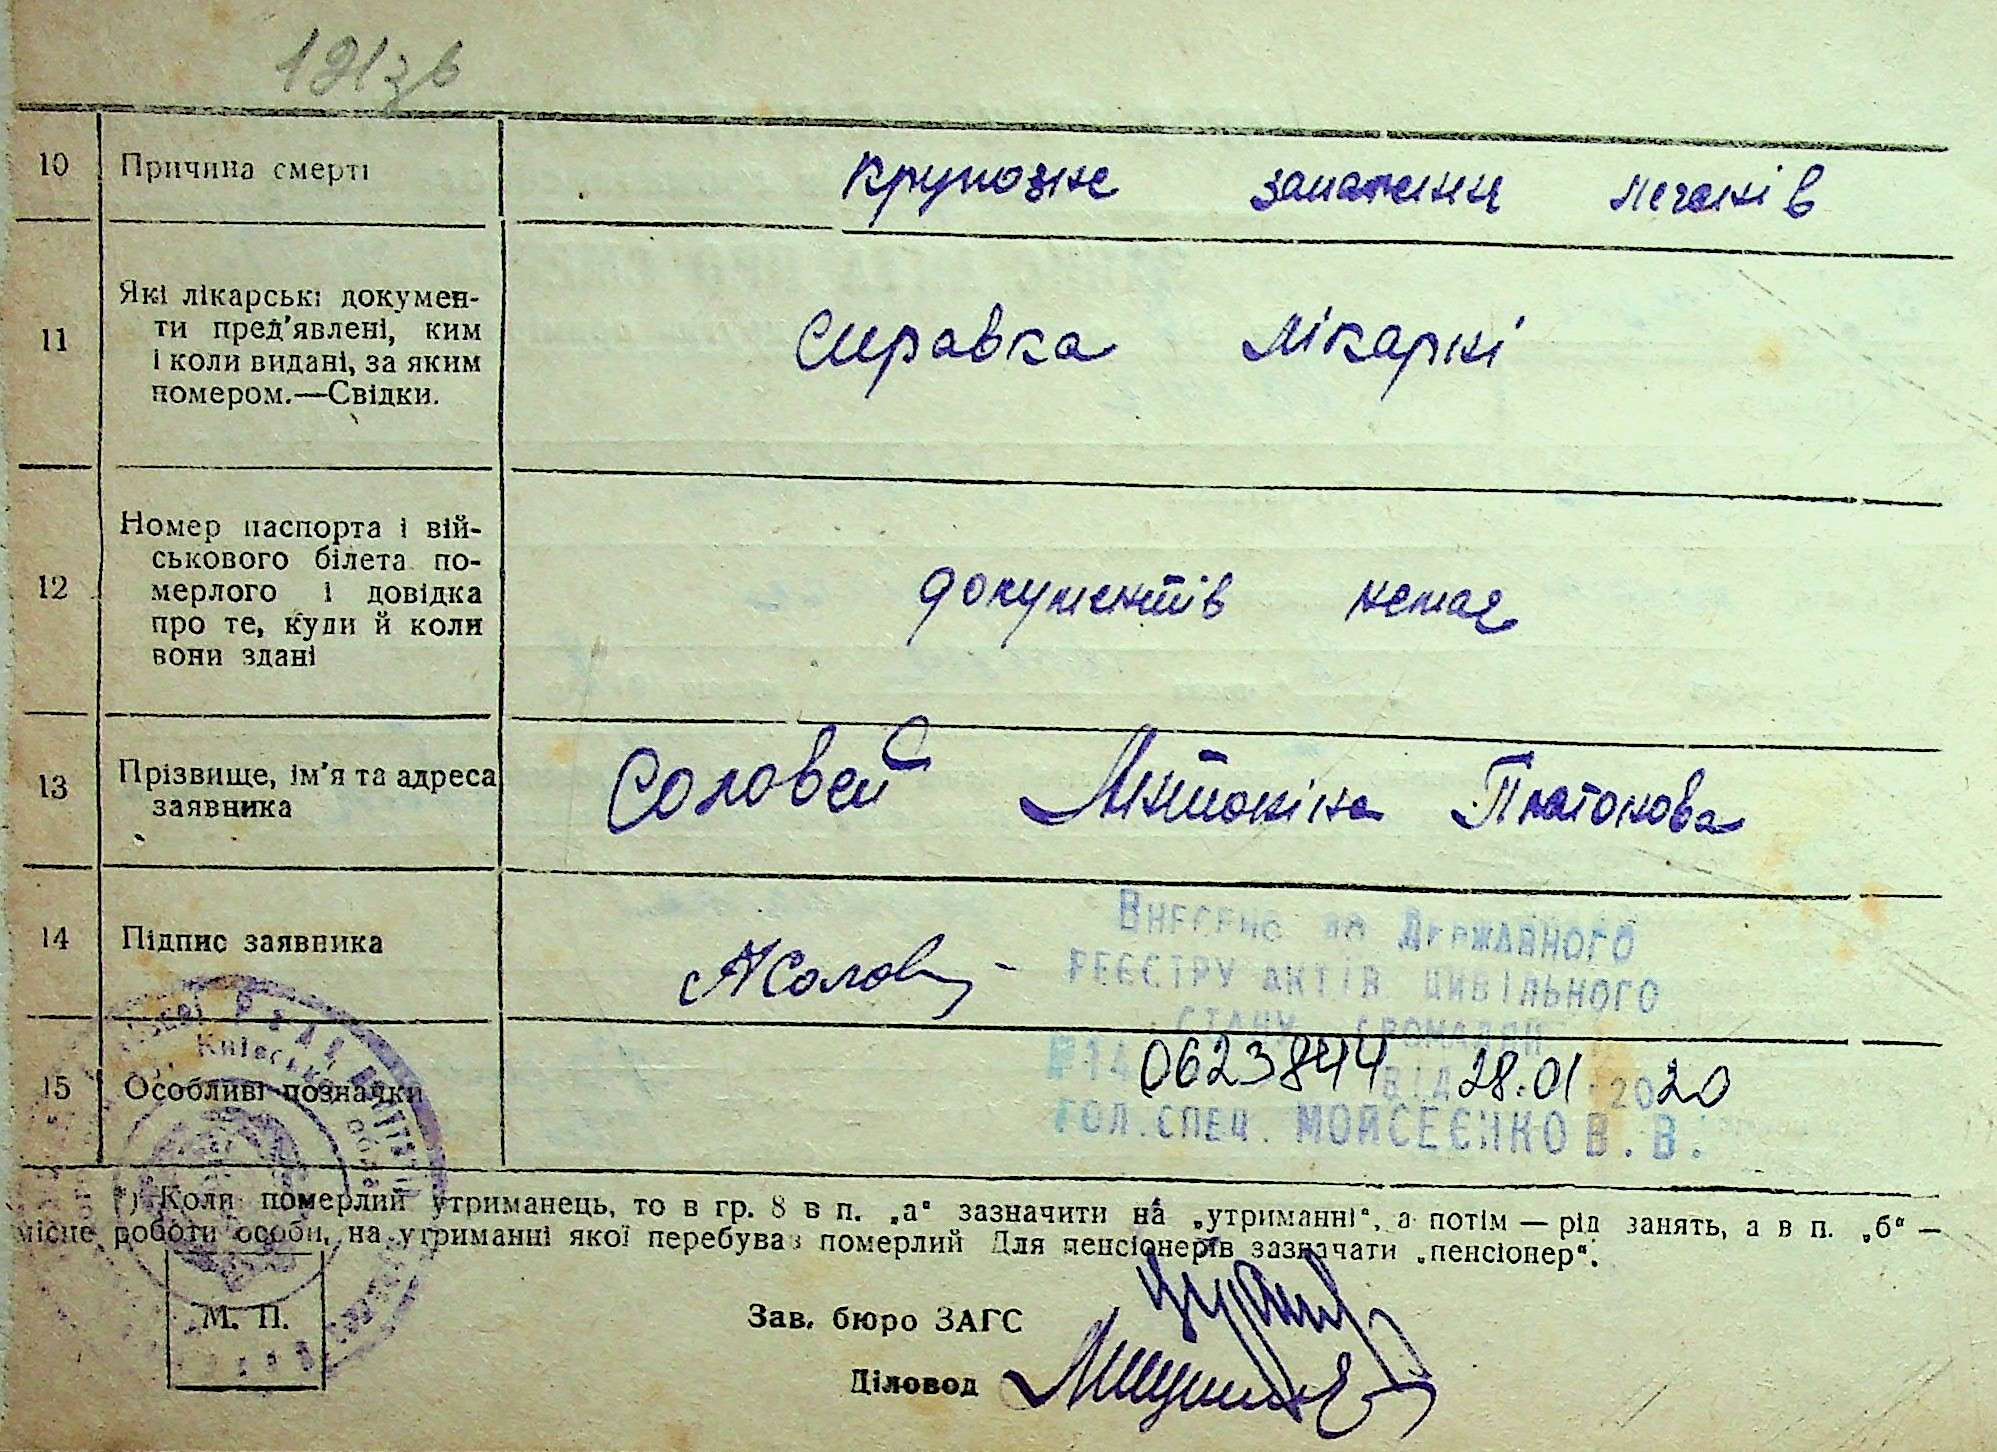 10 Причина смерті крупозне запаленн легенів
11 Які лікарські докумен-
ти пред'явлені, ким
і коли видані, за яким
номером.—Свідки.
справка лікарні
12 Номер паспорта і вій-
ськового білета по-
мерлого і довідка
про те, куди й коли
вони здані
документів немає
13 Прізвище, ім'я та адреса
заявника
Соловей Антоніна Платонова
14 Підпис заявника
АСолов
Внесено до Державного
реєстру актів цивільного
стану громадян
15 Особливі позначки
0623844 від 28.01 2020
гол. спец. Мойсеєнко В. В.
*) Коли померлий утриманець, то в гр. 8 в п. „а“ зазначити на „утриманні“, а потім — рід занять, а в п. „б“ —
місце роботи особи, на утриманні якої перебував померлий Для пенсіонерів зазначати „пенсіонер“.
М. П.
Зав. бюро ЗАГС
Діловод